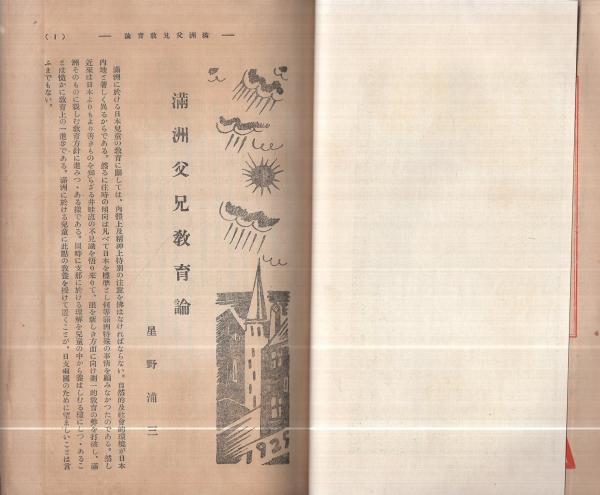 (1)
― 滿洲父兄敎育論 ―
1929
滿洲父兄敎育論
星野浦三
滿洲に於ける日本兒童の敎育に關しては、肉體上及精神上特別の注意を拂はなければならない。自然的及社會的環境が日本
內地と著しく異るからである。然るに往時の傾向は凡べて日本を標準とし何等滿洲特殊の事情を顧みなかつたのである。然し
近來は日本よりもより善きものを知らざる井蛙流の不見識を悟り來りて、眼を新しき方面に向け劃一的敎育の弊を打破し、滿
洲そのものに親しむ敎育方針に進みつゝある樣である。同時に支那に於ける理解を兒童の中から養ばしむる樣にしつゝあるこ
とは慥かに敎育上の一進步である。滿洲に於ける兒童に此點の敎養を授けて置くことが、日支兩國のために望ましいことは言
ふまでもない。